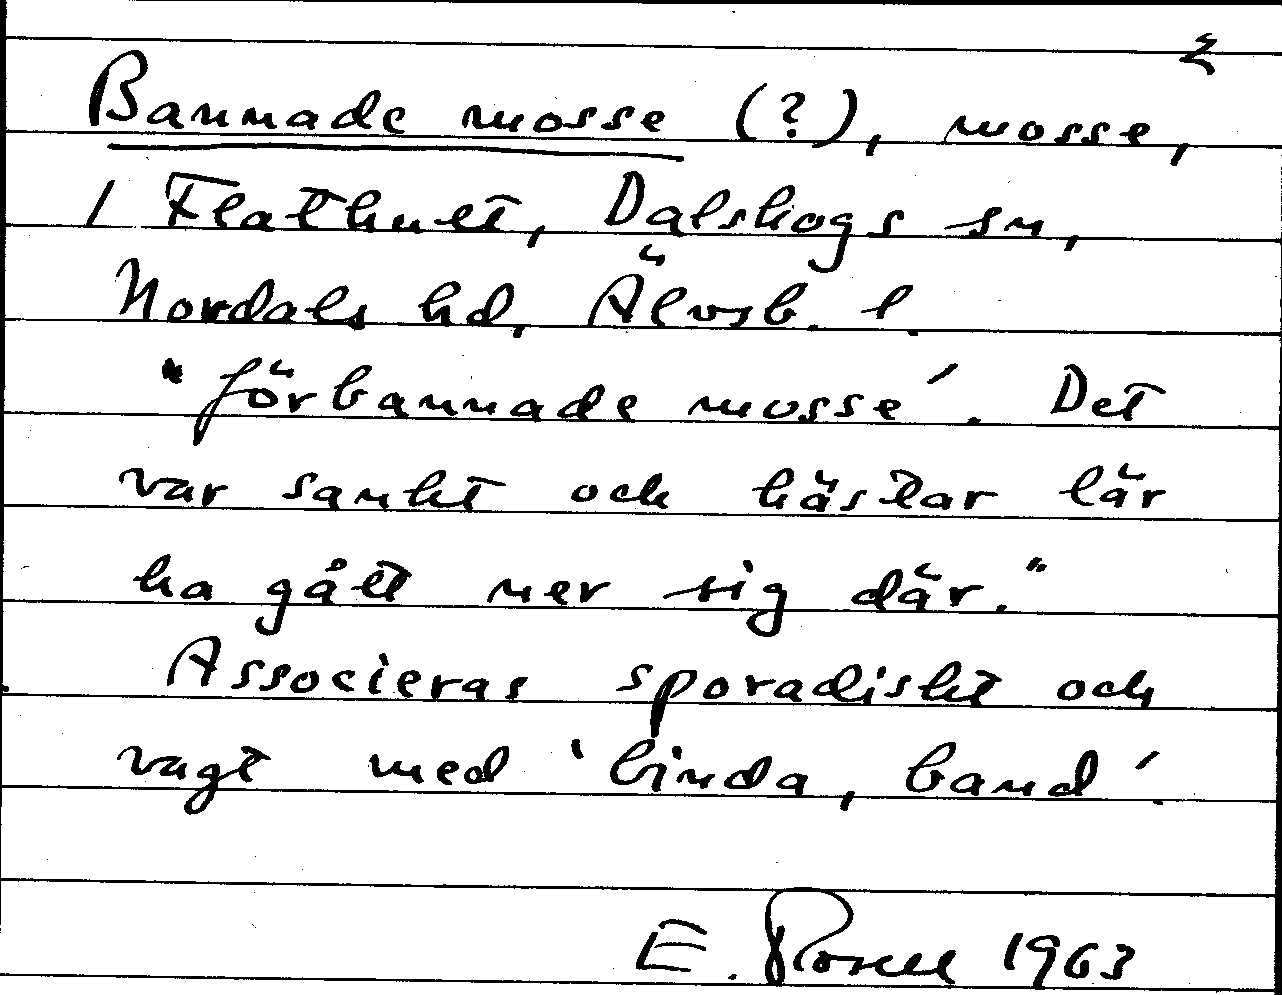 Bannade mosse (?), mosse,
1 Flathult, Dalskogs sn,
Nordals hd, Älvsb. l.
"förbannade mosse'. Det
var sankt och hästar lär
ha gått ner sig där."
Associeras sporadiskt och
vagt med 'binda, band'.
E. 1963